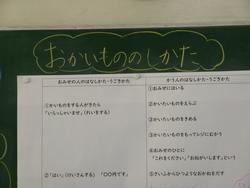 おかいもののしかた
おみせの人のはなしかた・うごきかた
かう人のはなしかた・うごきかた
①おみせにはいる
①かいものをする人がきたら
「いらっしゃいませ」(れいをする)
②かいたいものをえらぶ
③かいたいものをきめる
④かいたいものをもってレジにむかう
⑤おみせのひとに
「これをください」「おねがいします」という
②「はい」(けいさんする)「〇〇円です」
⑥さいふからひつようなおかねをだす